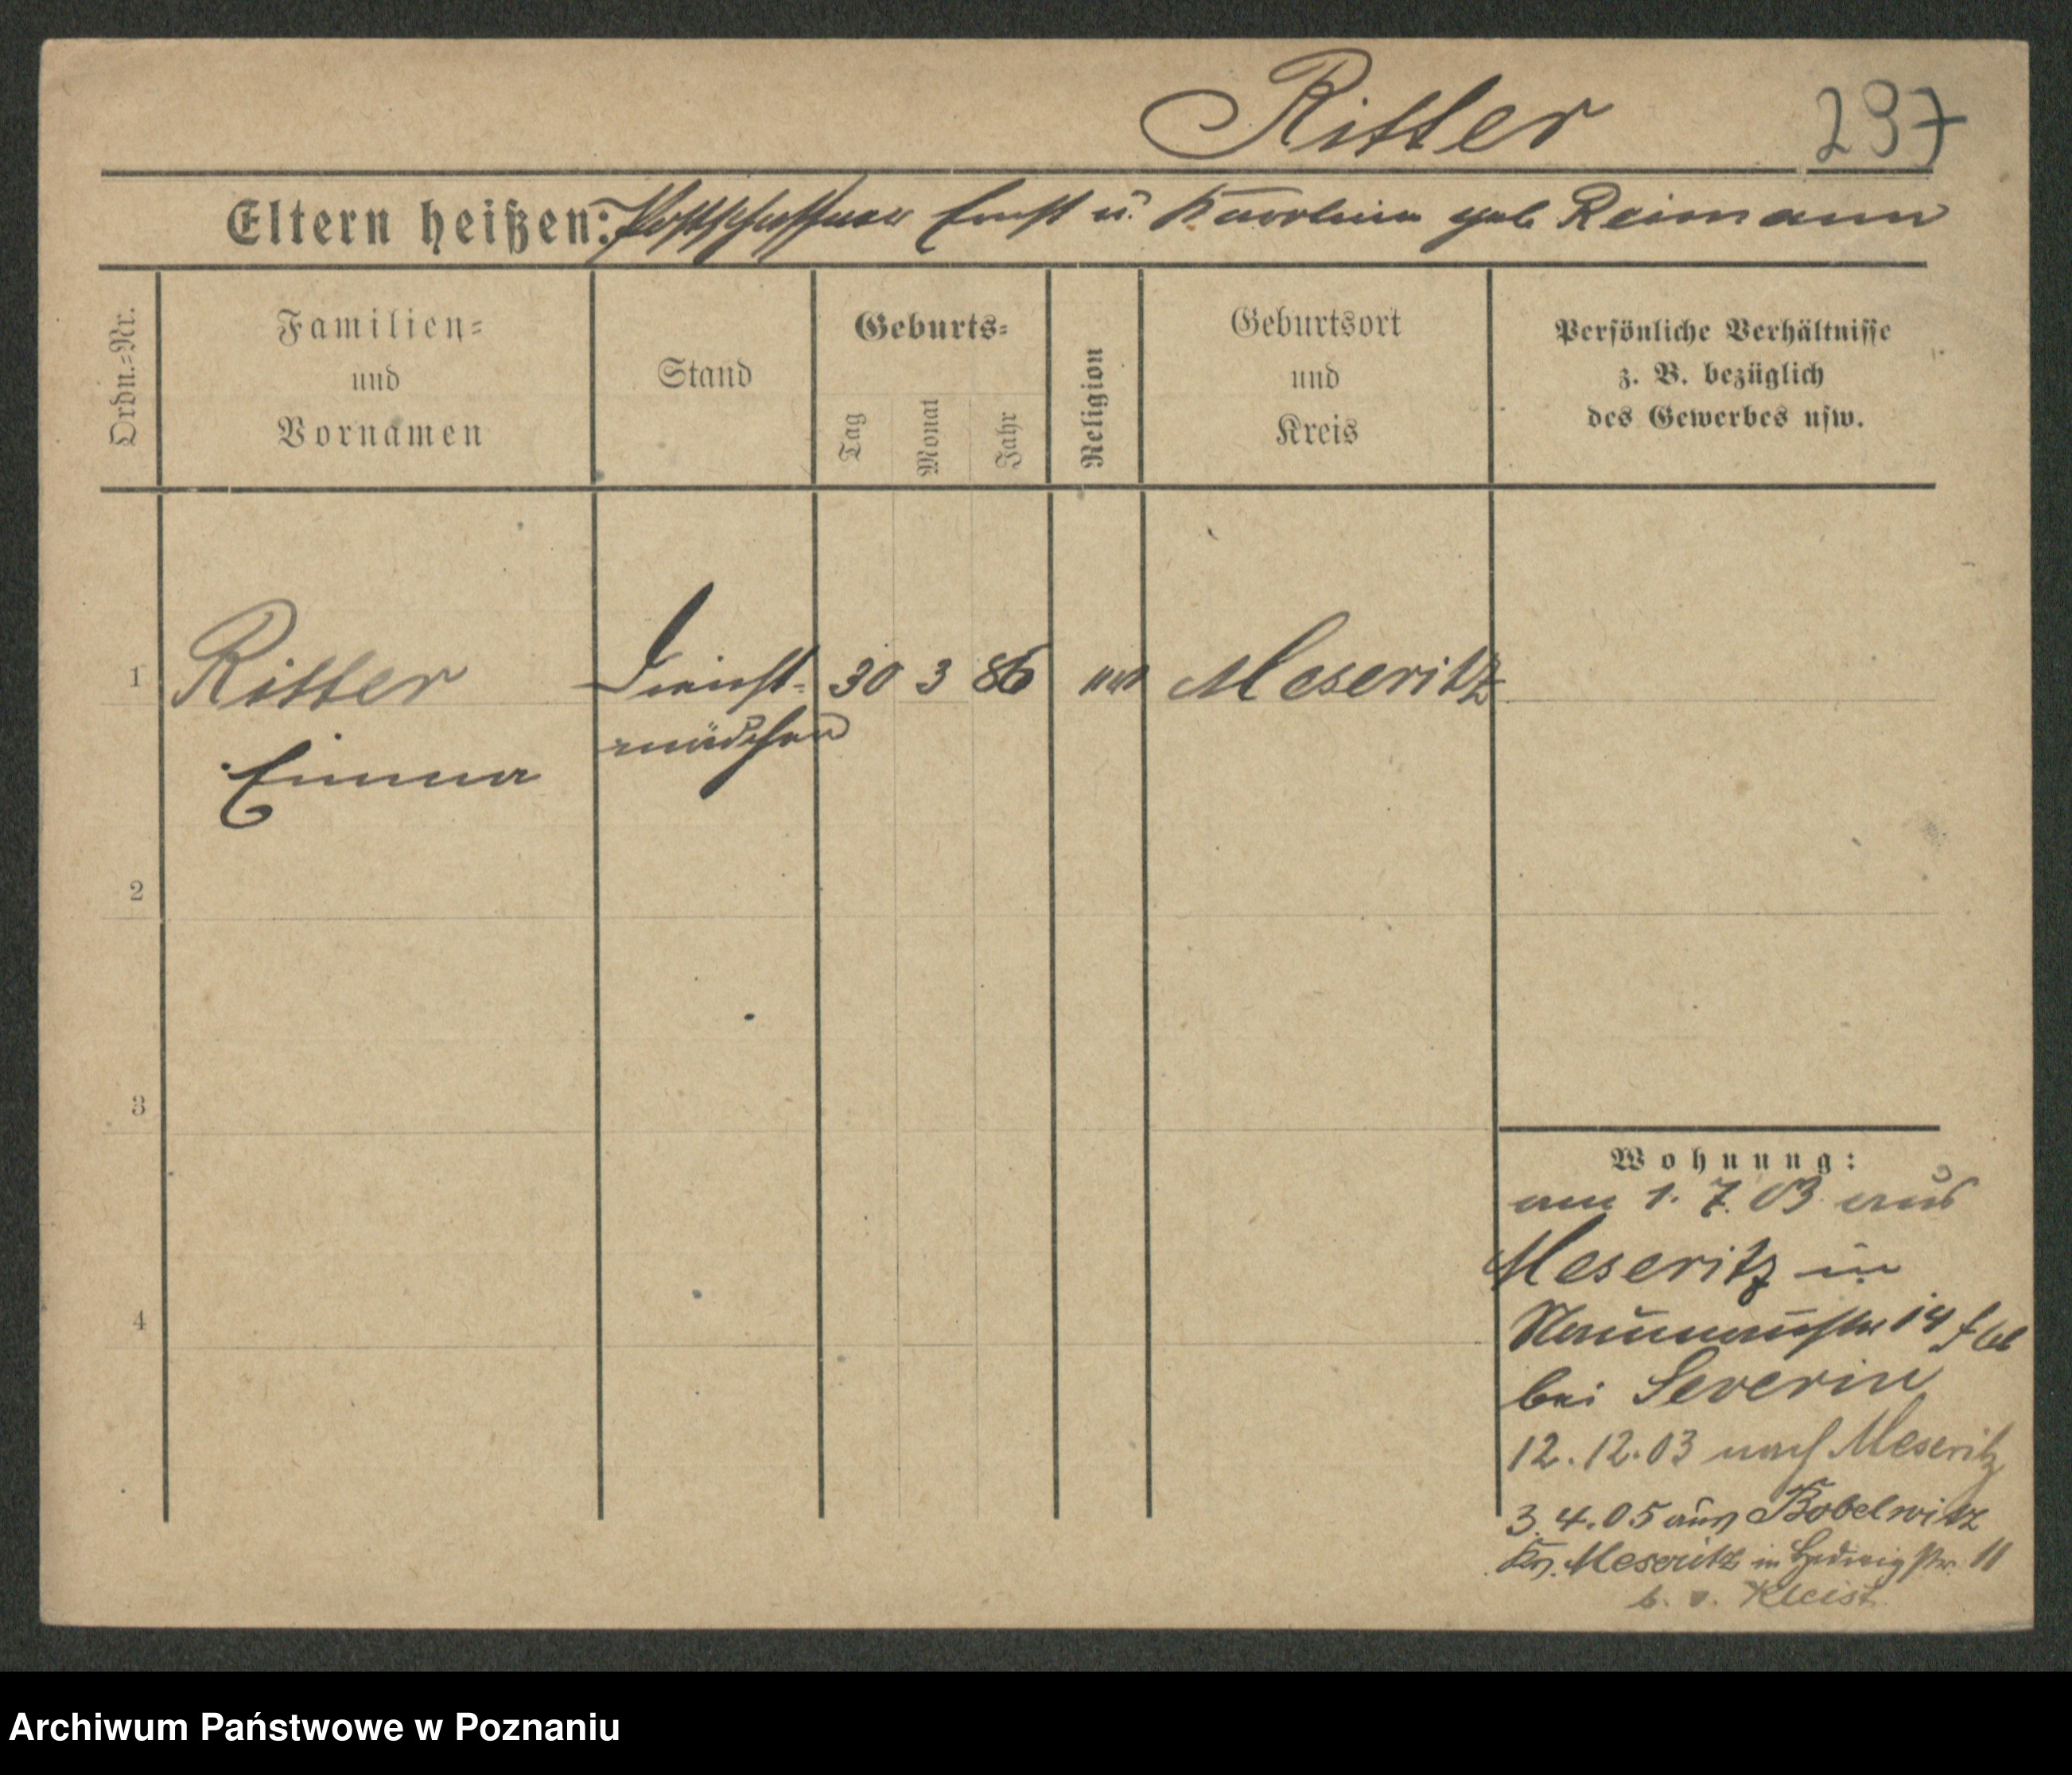 Ritter 297
Eltern heißen: Postschaffner Ernst u. Karoline geb Reimann
Ordn.=Nr.
Familien=
und
Vornamen
Stand
Geburts=
Tag
Monat
Jahr
Religion
Geburtsort
und
Kreis
Persönliche Verhältnisse
z. B. bezüglich
des Gewerbes usw.
1 Ritter Dienst= 30 3 86 Meseritz
mädchen
Emma
2
3
4
Wohnung:
am 1. 7. 03 aus
Meseritz in
Naumannstr 14
bei Severin
12. 12. 03 nach Meseritz
3. 4. 05 aus Bobelwitz
Krs. Meseritz in Hedwigstr. 11
b. v. Kleist
Archiwum Państwowe w Poznaniu